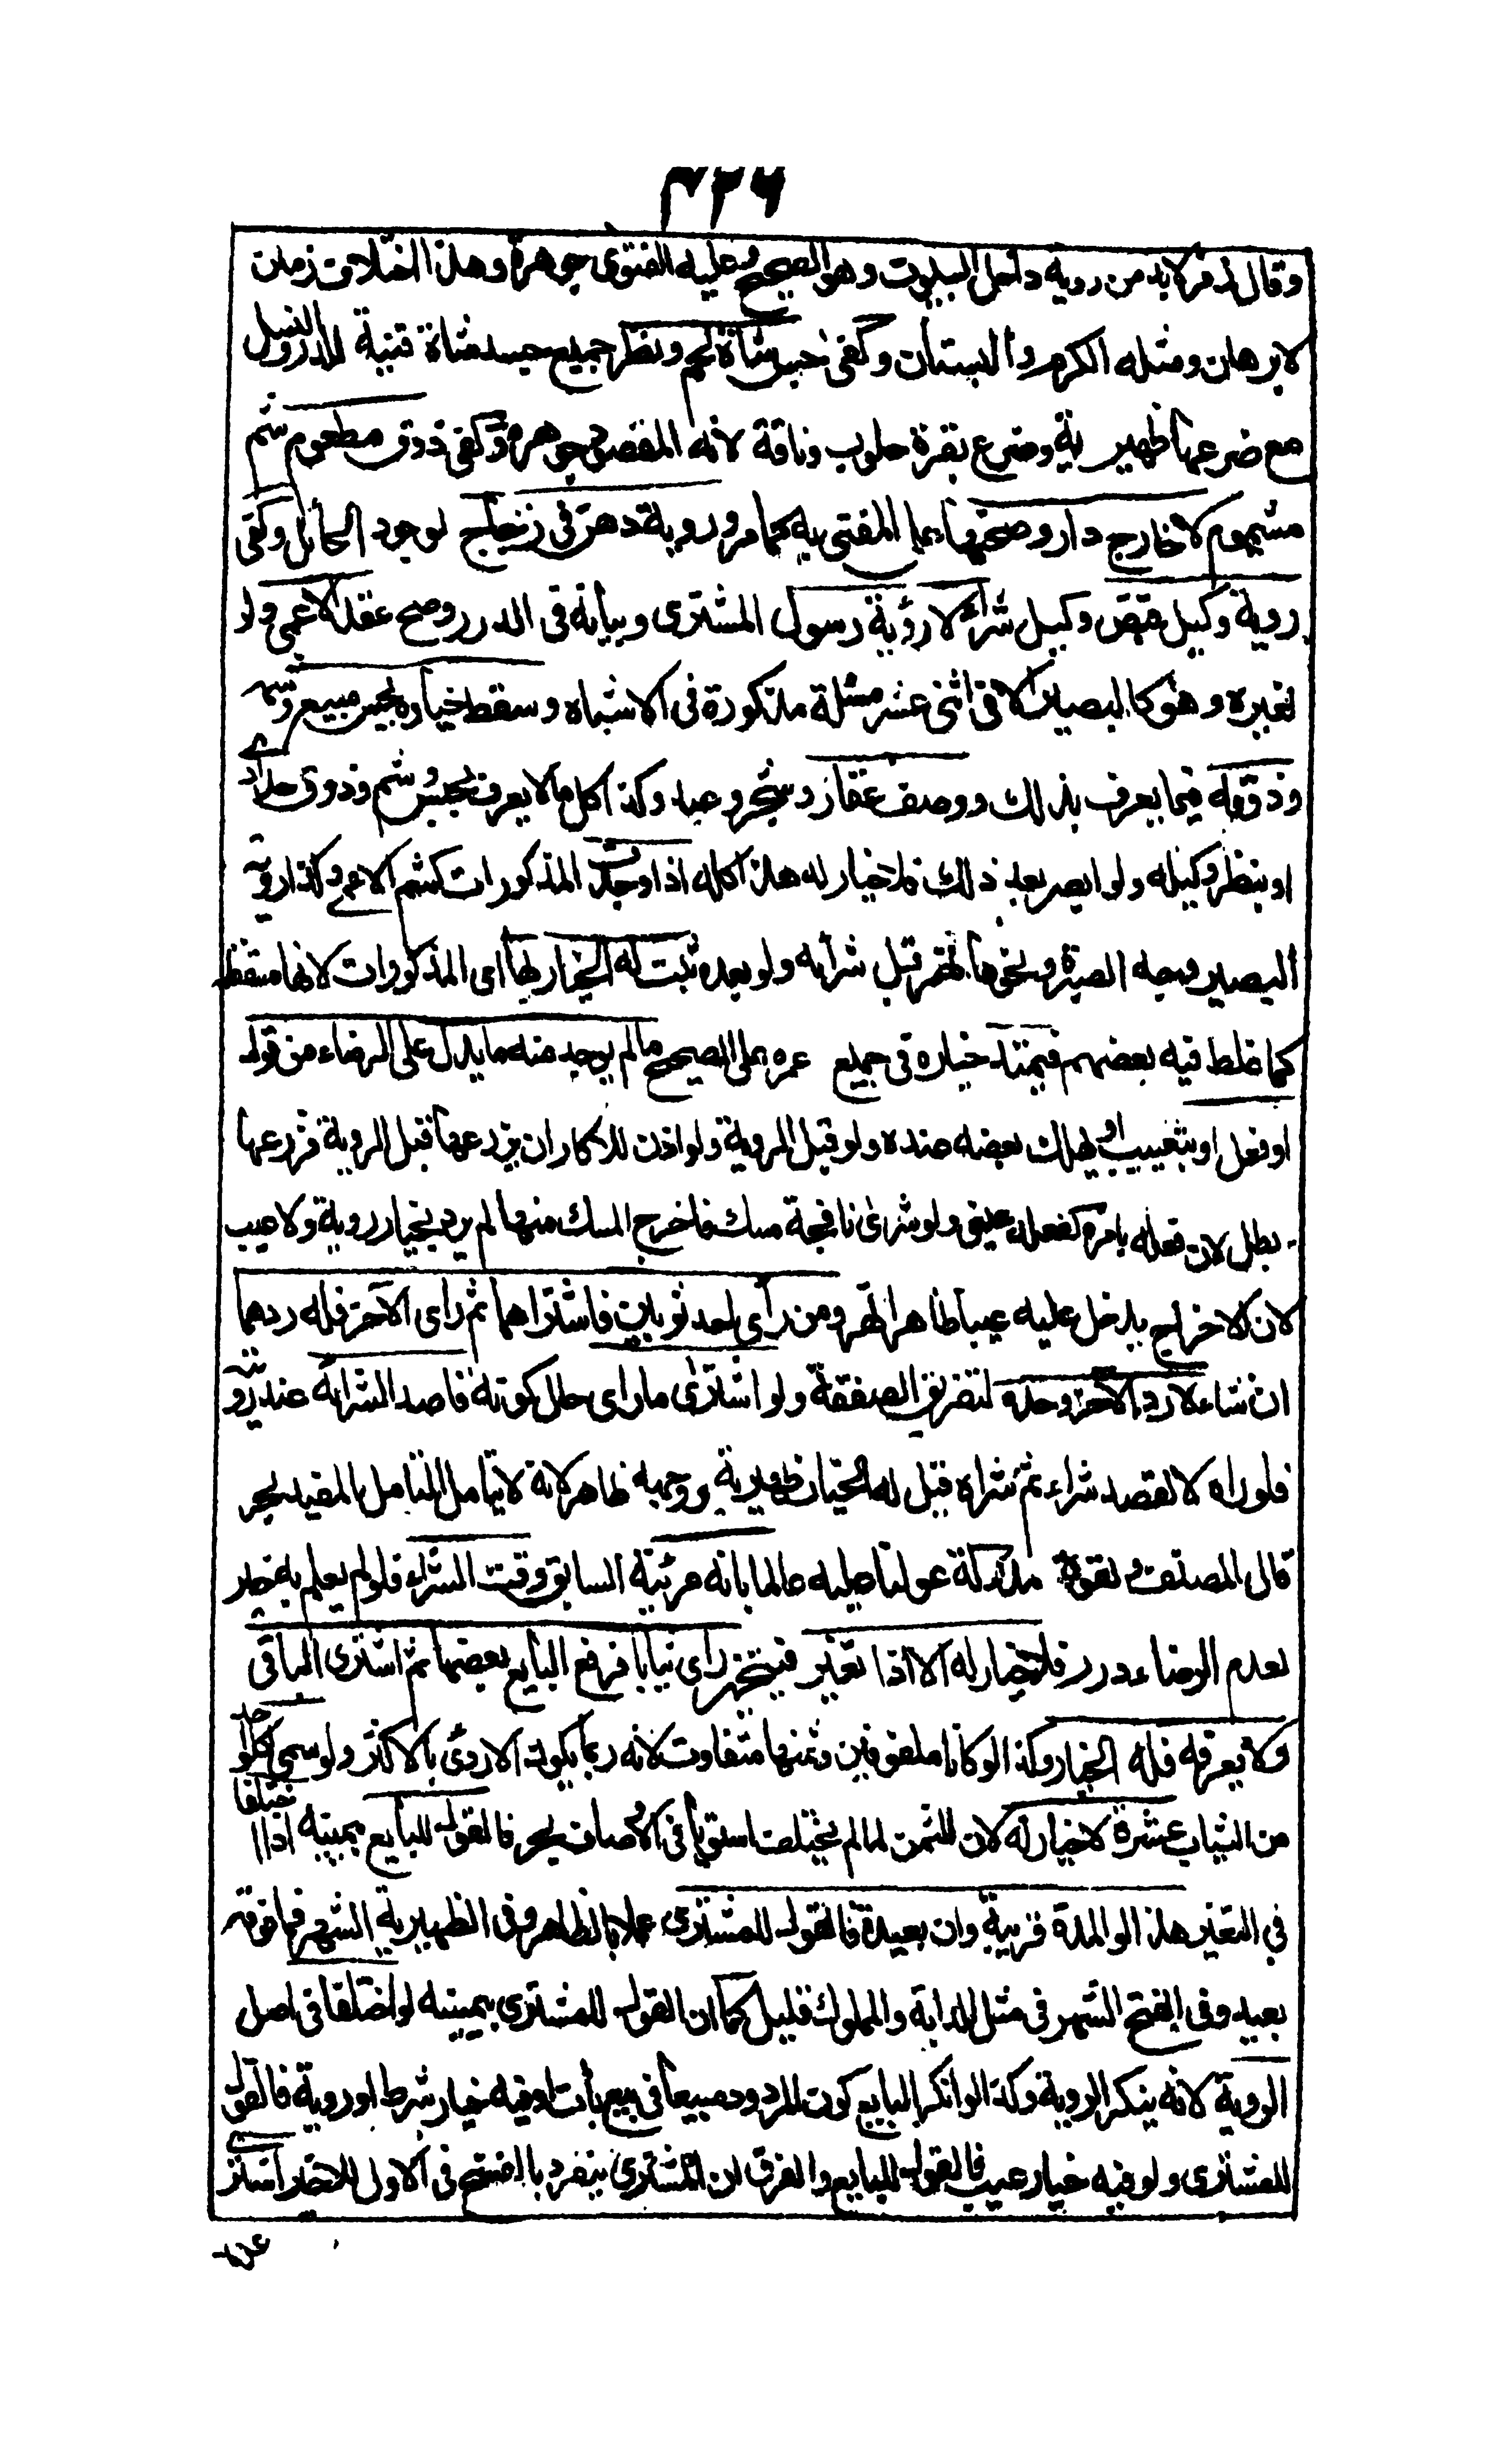 ٣٢٦
وقال زفر لابد من روية داخل البيوت وهو الصحيح وعليه الفتوى جوهرة وهذا اختلاف زمان
لا برهان ومثله الكرم والبستان وكفى حبس شاة لحم ونظر جميع جسد شاة قنية للدر والنسل
مع ضرعها ظهيرية وضرع بقرة حلوب وناقة لانه المقصود جوهرة وكفى ذوق مطعوم وشم
مشموم لا خارج دار وصحنها بما المفتى به كما مر وروية دهن في زجاج لوجود الحائل وكفى
روية وكيل قبض وكيل شراء لا رؤية رسول المشترى وبيانه في الدرر وصح عقد الاعمى ولو
لغيره وهو كالبصير الا في اثنى عشر مسئلة مذكورة في الاشباه وسقط خياره بجس مبيع وشمه
وذوقه فيما يعرف بذلك ووصف عقار وشجر وعبد وكذا كل ما لا يعرف بجس وشم وذوق حدادى
او بنظر وكيله ولو ابصر بعد ذلك فلا خيار له هذا كله اذا وجدت المذكورات كشم الاعمى وكذا روية
البصير وجه الصبرة ونحوها نهر قبل شرائه ولو بعده ثبت له الخيار بها اى المذكورات لانها مسقطة
كما غلط فيه بعضهم فيمتد خياره في جميع عمره على الصحيح مالم يوجد منه ما يدل على الرضاء من قول
او فعل او يتعيب او يهلك بعضه عنده ولو قبل الروية ولو اذن للاكار ان يزرعها قبل الروية فزرعها
بطل لان فعله بامره كفعله عينى ولو شرى نافجة مسك فاخرج المسك منها لم يرد بخيار روية ولا عيب
لان الاخراج يدخل عليه عيبا ظاهرا نهر ومن راى احد ثوبين فاشتراهما ثم راى الآخر فله ردهما
ان شاء لا رد الآخر وحده لتفريق الصفقة ولو اشترى ما راى حال كونه قاصدا لشرائه عند رويته
فلو راه لا لقصد شراء ثم شراه قيل له الخيار ظهيرية ووجهه ظاهر لانه لا يتامل التامل المفيد بحر
قال المصنف ولقوة مدركه عولنا عليه عالما بانه مرئيه السابق وقت الشراء فلو لم يعلم به خير
لعدم الرضاء درر فلا خيار له الا اذا تغير فيتخير راى ثيابا فرفع البايع بعضها ثم اشترى الباقى
ولا يعرفه فله الخيار وكذا لو كانا ملفوفين وثمنهما متفاوت لانه ربما يكون الاردئ بالاكثر ولو سمى لكل واحد
من الثياب عشرة لا خيار له لان الثمن لما لم يختلف استويا في الاوصاف بحر فالقول للبايع بيمينه اذا اختلفا
في التغير هذا لو المدة قريبة وان بعيدة فالقول للمشترى عملا بالظاهر وفي الظهيرية الشهر فما فوقه
بعيد وفي الفتح الشهر في مثل الدابة والمملوك قليل كما ان القول للمشترى بيمينه لو اختلفا في اصل
الروية لانه ينكر الروية وكذا لو انكر البايع كون المردود مبيعا في بيع بات او فيه خيار شرط او روية فالقول
للمشترى ولو فيه خيار عيب فالقول للبايع والفرق ان المشترى ينفرد بالفسخ في الاول لا الاخير اشترى
عدلا